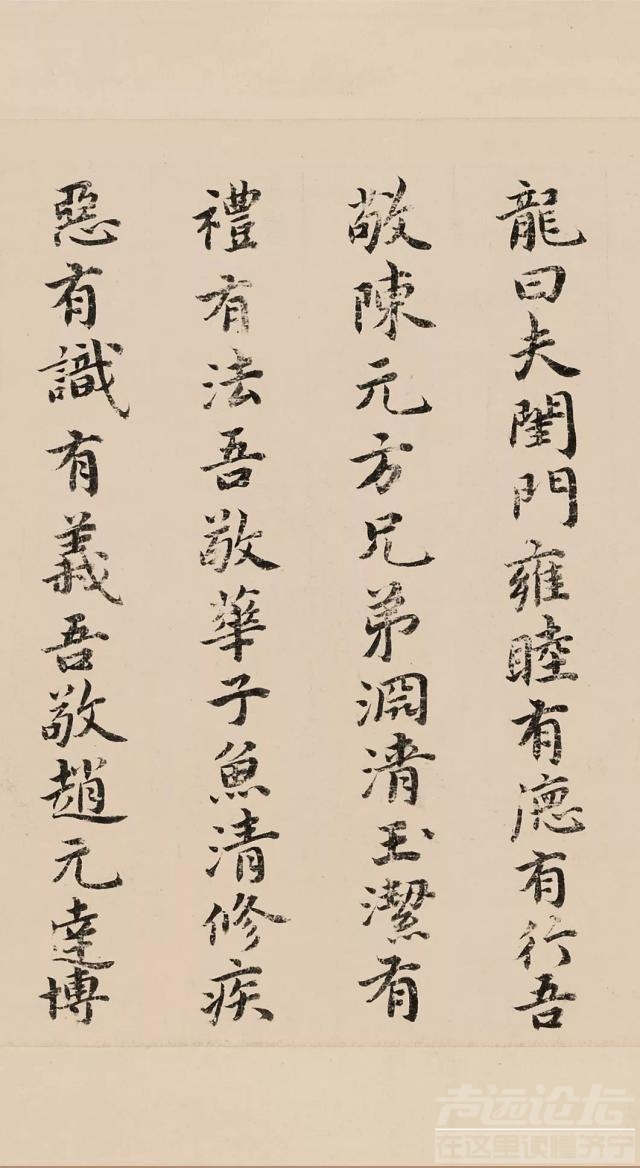 龍曰夫閨門雍睦有德有行吾
敬陳元方兄弟淵清玉潔有
禮有法吾敬華子魚清修疾
惡有識有義吾敬趙元達博
声远论坛
在这里读懂济宁